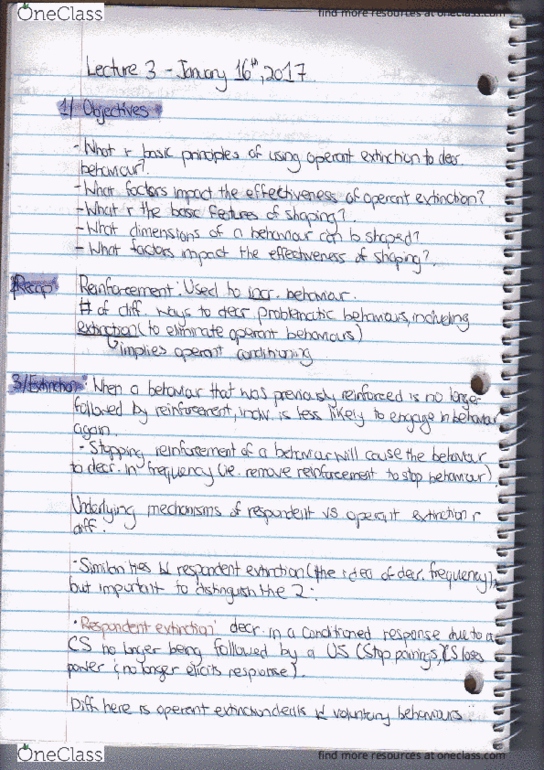 OneClass
find more resources at oneclass.com
Lecture 3 - January 16th, 2017
1/ Objectives
- What r basic principles of using operant extinction to decr.
behaviour?
- What factors impact the effectiveness of operant extinction?
- What r the basic features of shaping?
- What dimensions of a behaviour can b shaped?
- What factors impact the effectiveness of shaping?
Recap
Reinforcement: Used to incr. behaviour.
# of diff. ways to decr problematic behaviours, including
extinction (to eliminate operant behaviours)
↳ implies operant conditioning
3/Extinction: When a behaviour that was previously reinforced is no longer
followed by reinforcement, indiv. is less likely to engage in behaviour
again.
- Stopping reinforcement of a behaviour will cause the behaviour
to decr. in frequency (i.e. remove reinforcement to stop behaviour)
Underlying mechanisms of respondent vs operant extinction r
diff.
- Similarities w respondent extinction (the idea of decr. frequency),
but important to distinguish the 2:
• Respondent extinction: decr. in a conditioned response due to a
CS no longer being followed by a US (Stop pairings, CS loses
power; no longer elicits response).
Diff here is operant extinction deals w voluntary behaviours.
OneClass
find more resources at oneclass.com